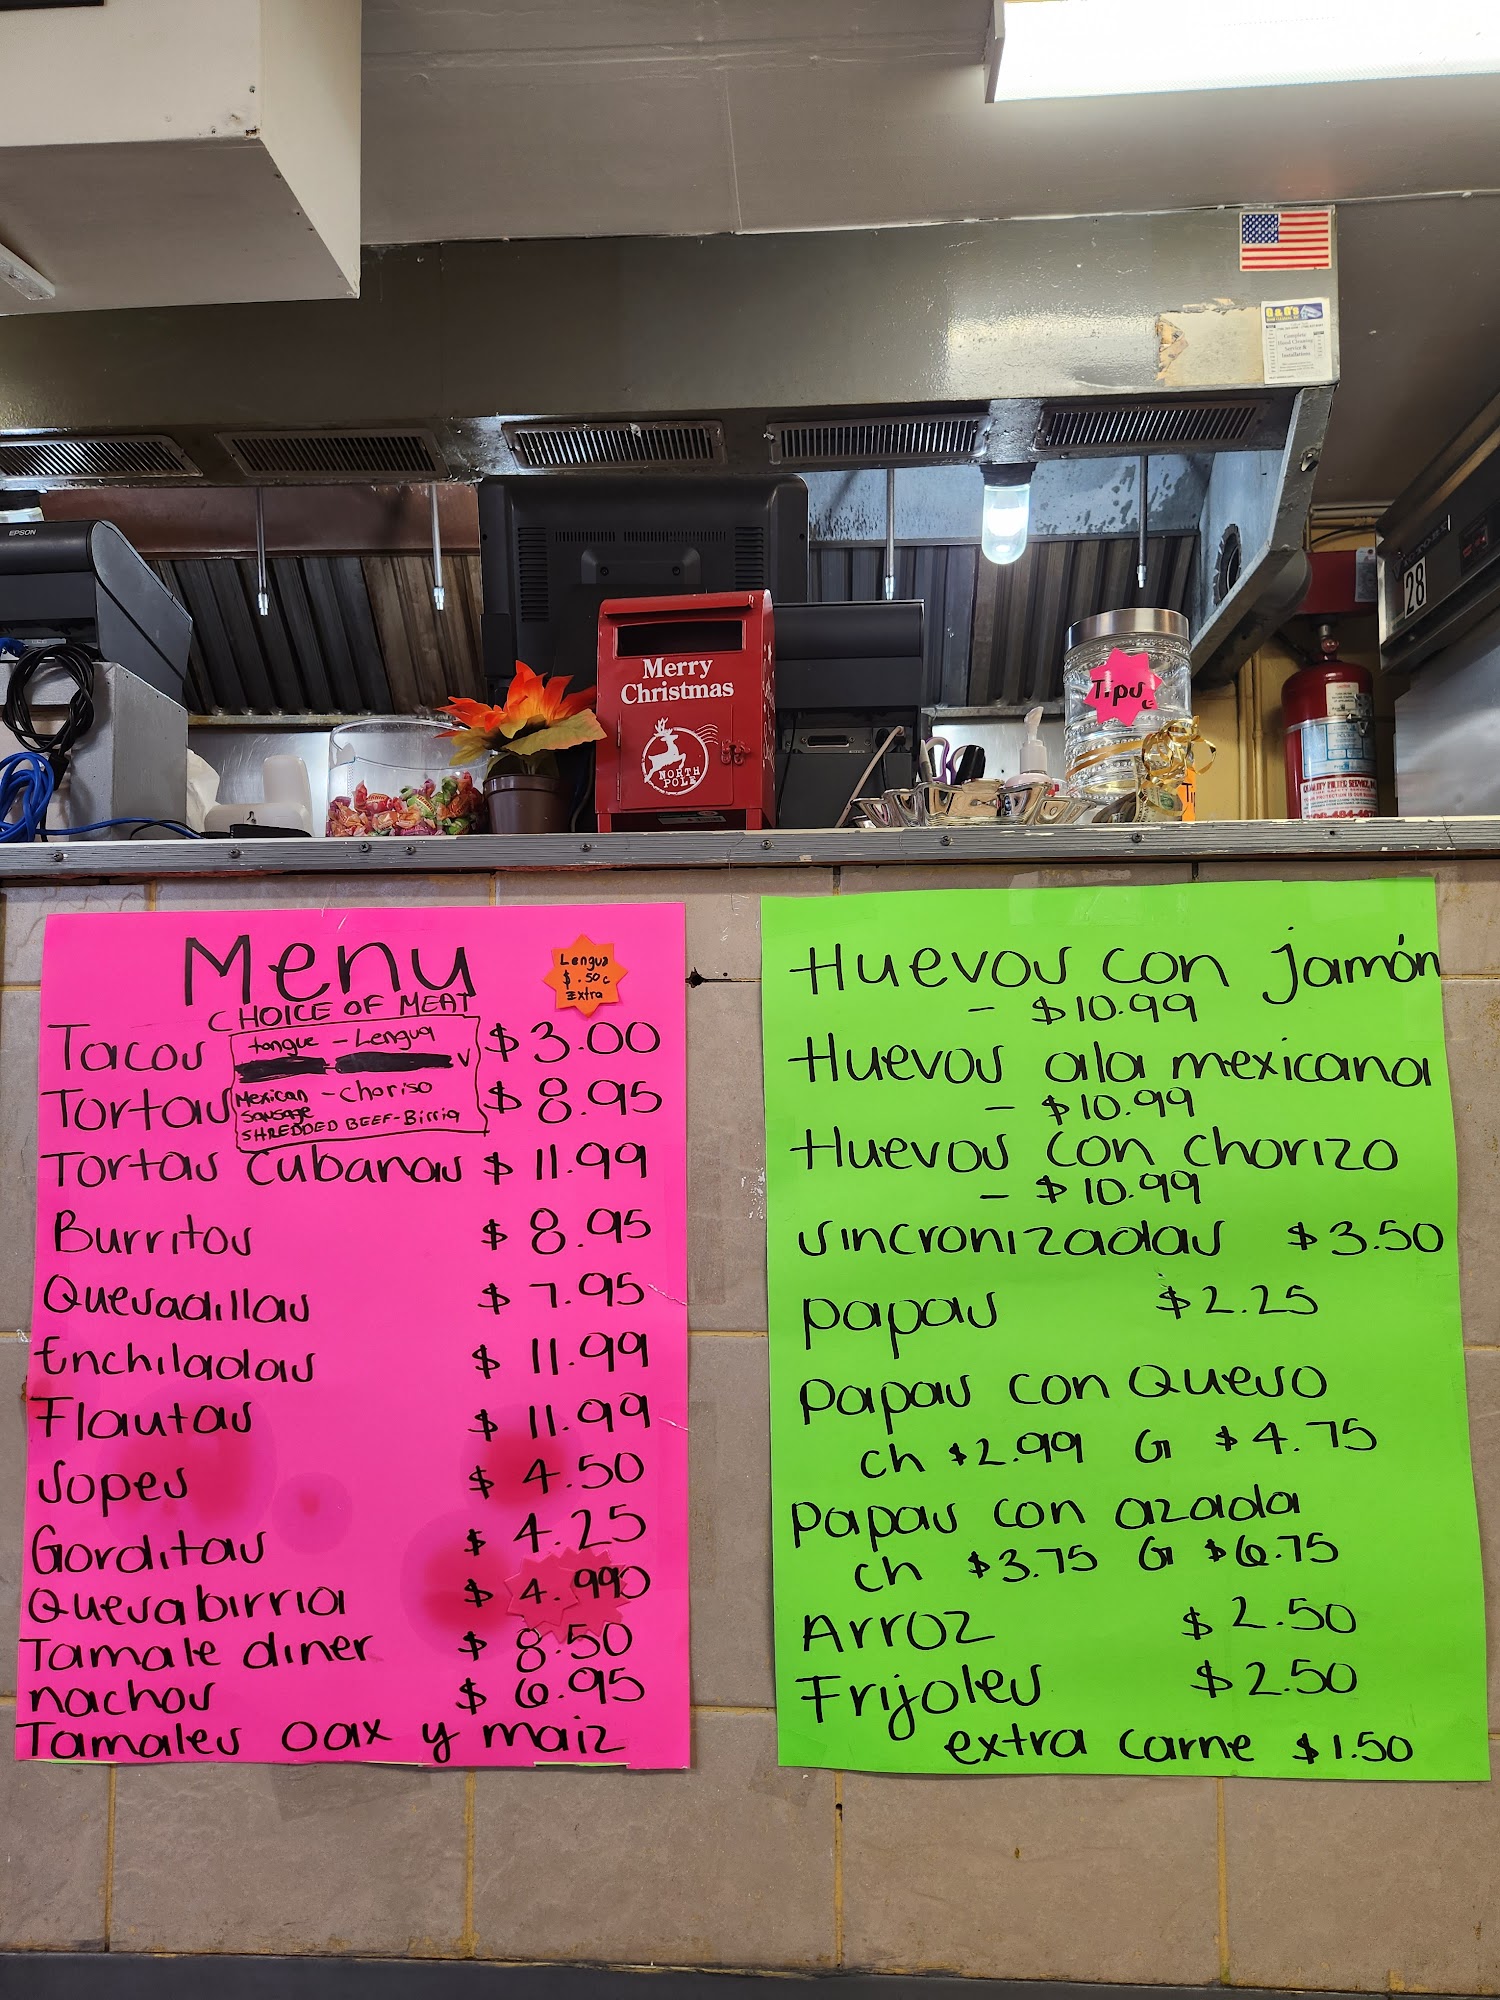 EPSON
28
Merry
Christmas
NORTH
POLE
Tips
G & G's
Complete
Hood Cleaning
Service &
Installations
QUALITY FILTER SERVICE
Menu
Lengua
$.50c
Extra
CHOICE OF MEAT
tongue - Lengua
Mexican - Choriso
Sausage
SHREDDED BEEF-Birria
Tacos $3.00
Tortas $8.95
Tortas Cubanas $11.99
Burritos $8.95
Quesadillas $7.95
Enchiladas $11.99
Flautas $11.99
Sopes $4.50
Gorditas $4.25
Quesabirria $4.99
Tamale diner $8.50
nachos $6.95
Tamales oax y maiz
Huevos con jamón
- $10.99
Huevos ala mexicana
- $10.99
Huevos con chorizo
- $10.99
sincronizadas $3.50
papas $2.25
papas con Queso
ch $2.99 G $4.75
papas con azada
ch $3.75 G $6.75
Arroz $2.50
Frijoles $2.50
extra carne $1.50